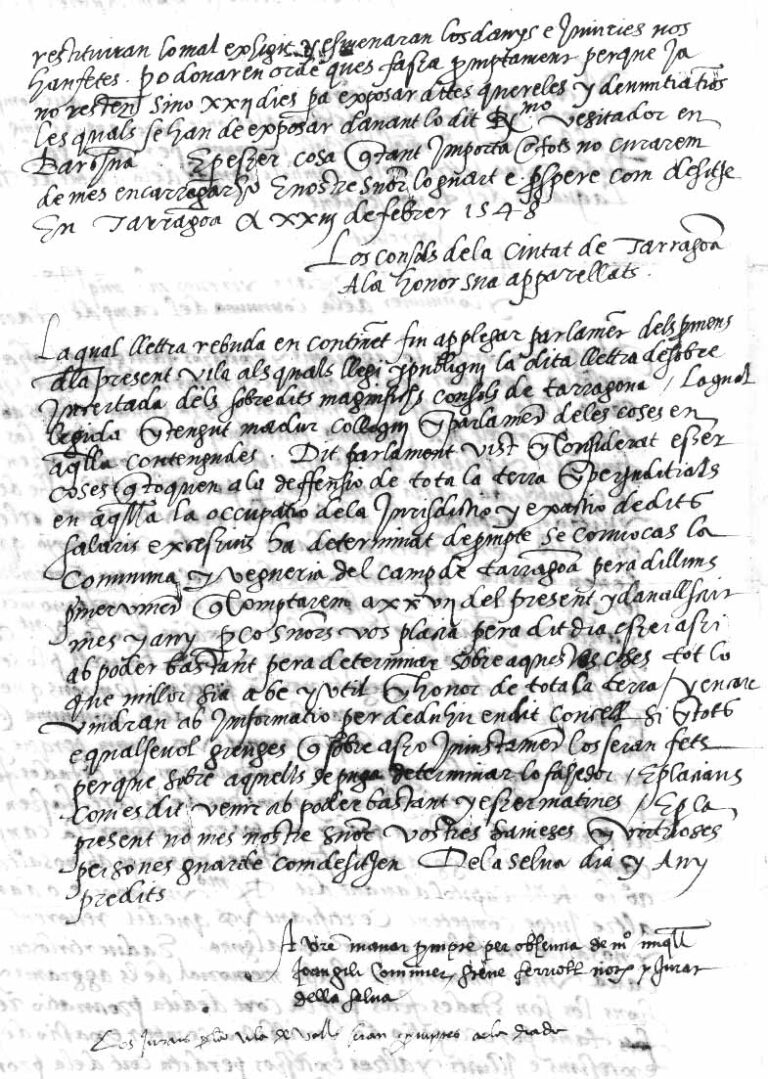 restituiran lo mal exhigit y esmenaran los danys e Iniuries nos
han fetes. po donaren orde ques fassa promptament perque ja
no resten sino xxii dies pa exposar dites quereles y denuntiatios
les quals se han de exposar dauant lo dit R.mo vesitador en
Barna. E per esser cosa q tant Importa a tots no curarem
de mes encarregarho E nostre Snor lo guart e prospere com desitje
En Tarragoa A xxiii de febrer 1548
Los consols de la Ciutat de Tarragoa
A la honor sua apparellats.
La qual lletra rebuda en continet fiu applegar parlamet dels promens
dla present vila als quals llegi y publiqui la dita lletra desobre
Insertada dels sobredits magnifichs consols de tarragona / La qual
legida y tengut madur colloqui y parlamet de les coses en
aqlla contengudes. Dit parlament vist y considerat esser
coses q toquen a la deffensio de tota la terra y perjuditials
en aqlla la occupatio de la Jurisdictio y exactio de dits
salaris excessius ha determinat de prompte se convocas la
Comuna y vegueria del camp de Tarragoa pera dilluns
primer vinet q comptarem a xxvii del present y dauall scrit
mes y any pco snors vos placia pera dit dia esser assi
ab poder bastant pera determinar sobre aquestes coses tot lo
que millor sia a be y util y honor de tota la terra / y encare
vindran ab Informatio per deduhir en dit Consell si y tots
e qualsevol greuges q sobre asso Iniustamet los seran fets
perque sobre aquells se puga determinar lo fahedor / E placiaus
com es dit venir ab poder bastant y esser matines / E p la
present no mes nostre snor vostres sauieses y virtuoses
persones guarde com desitjen De la selua dia y Any
predits
A vre manar prompte per obseruia de m.o miqll
Joan gili Comuner, ferroll not. y Jurat
della selua
Los Jurats p la vila de Valls seran promptes a la diada